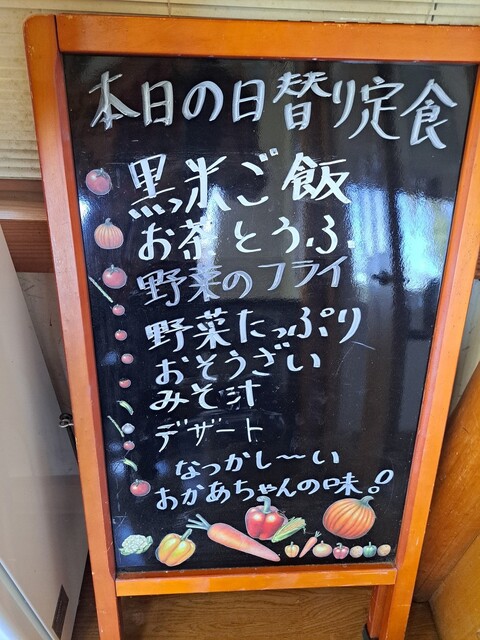 本日の日替り定食
黒米ご飯
お茶とうふ
野菜のフライ
野菜たっぷり
おそうざい
みそ汁
デザート
なつかし〜い
おかあちゃんの味!